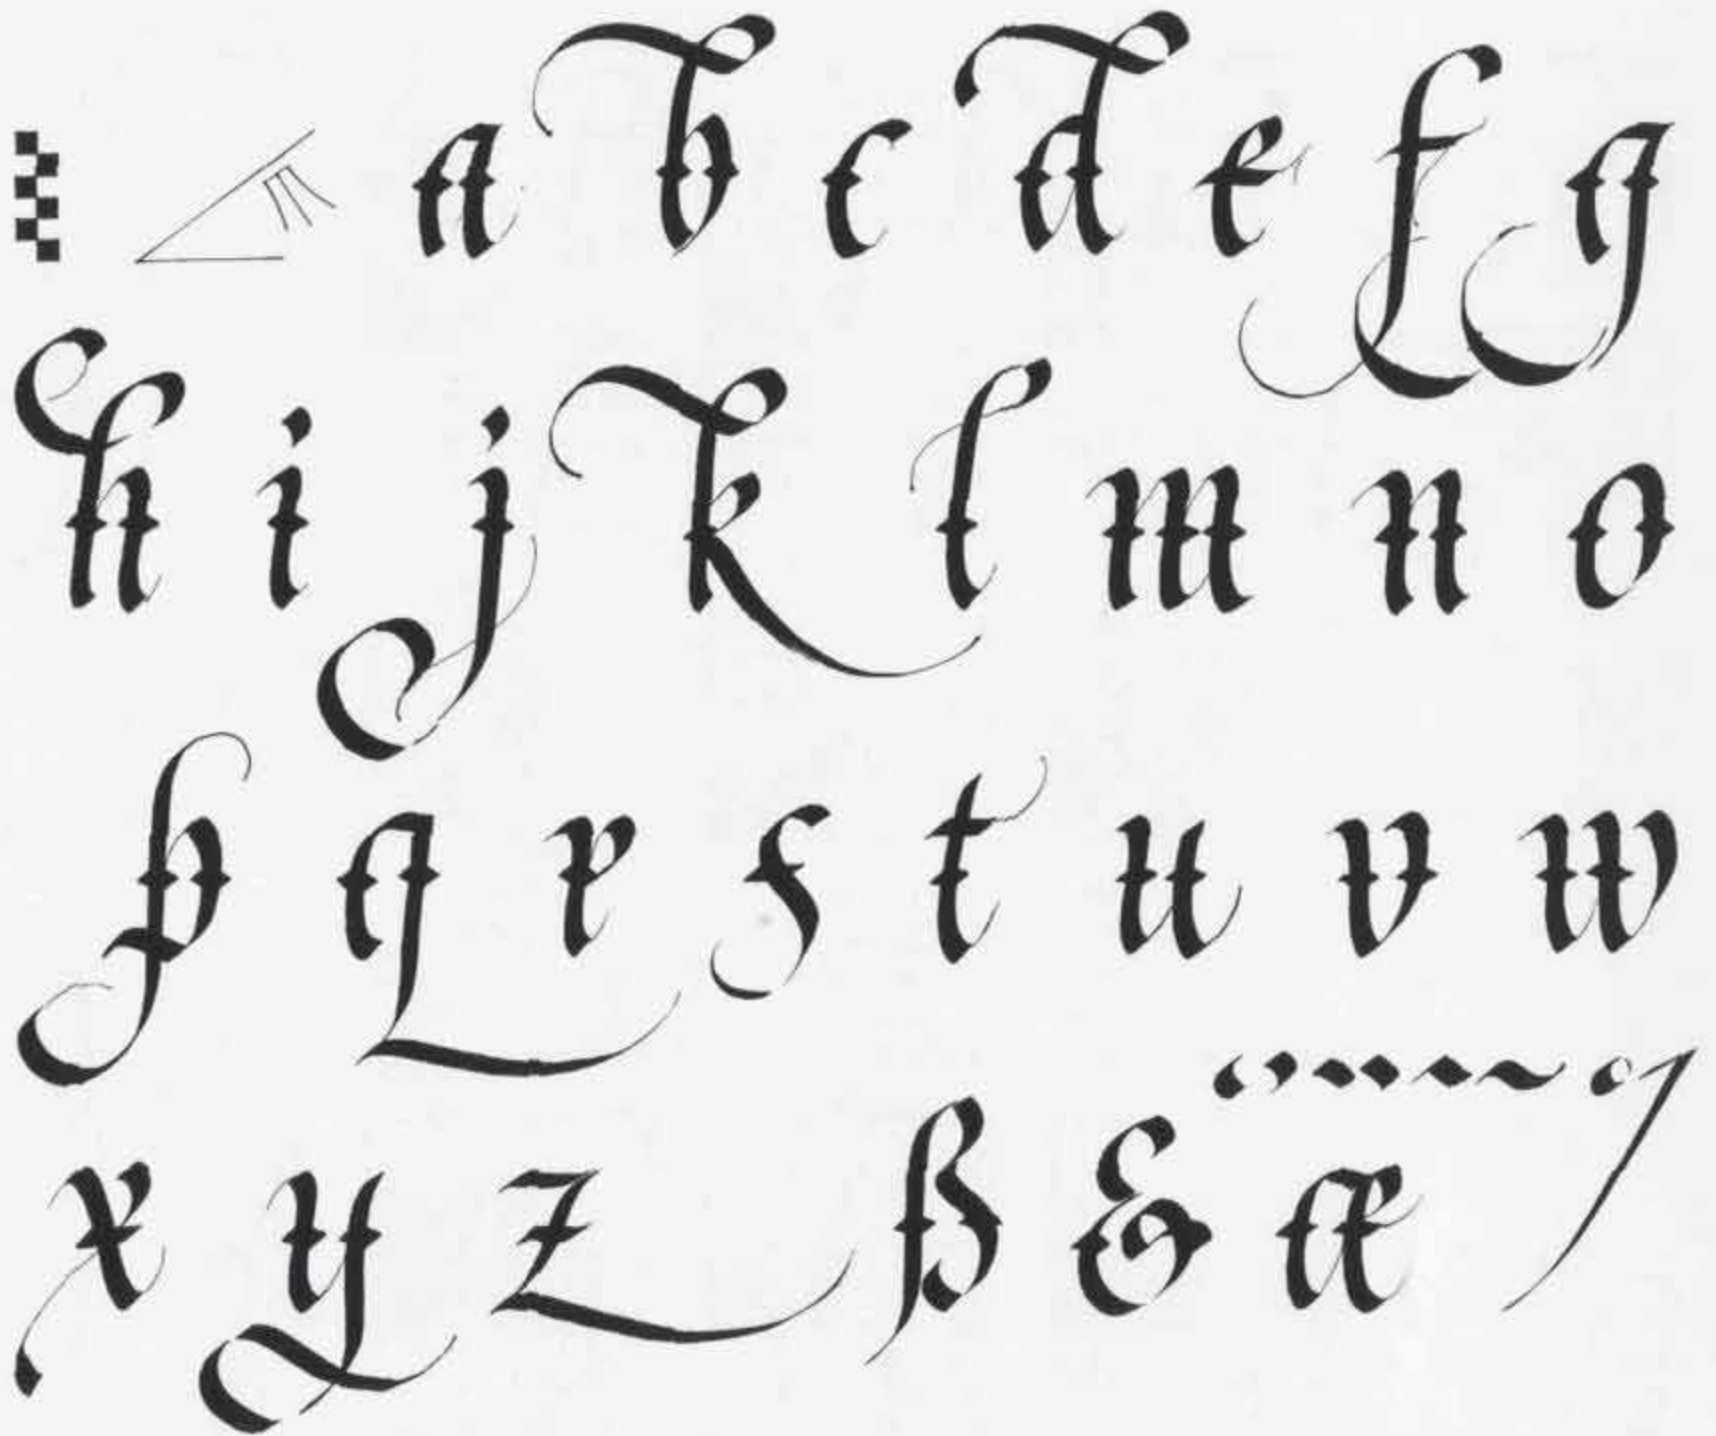 a b c d e f g
h i j k l m n o
p q r s t u v w
x y z ß & æ